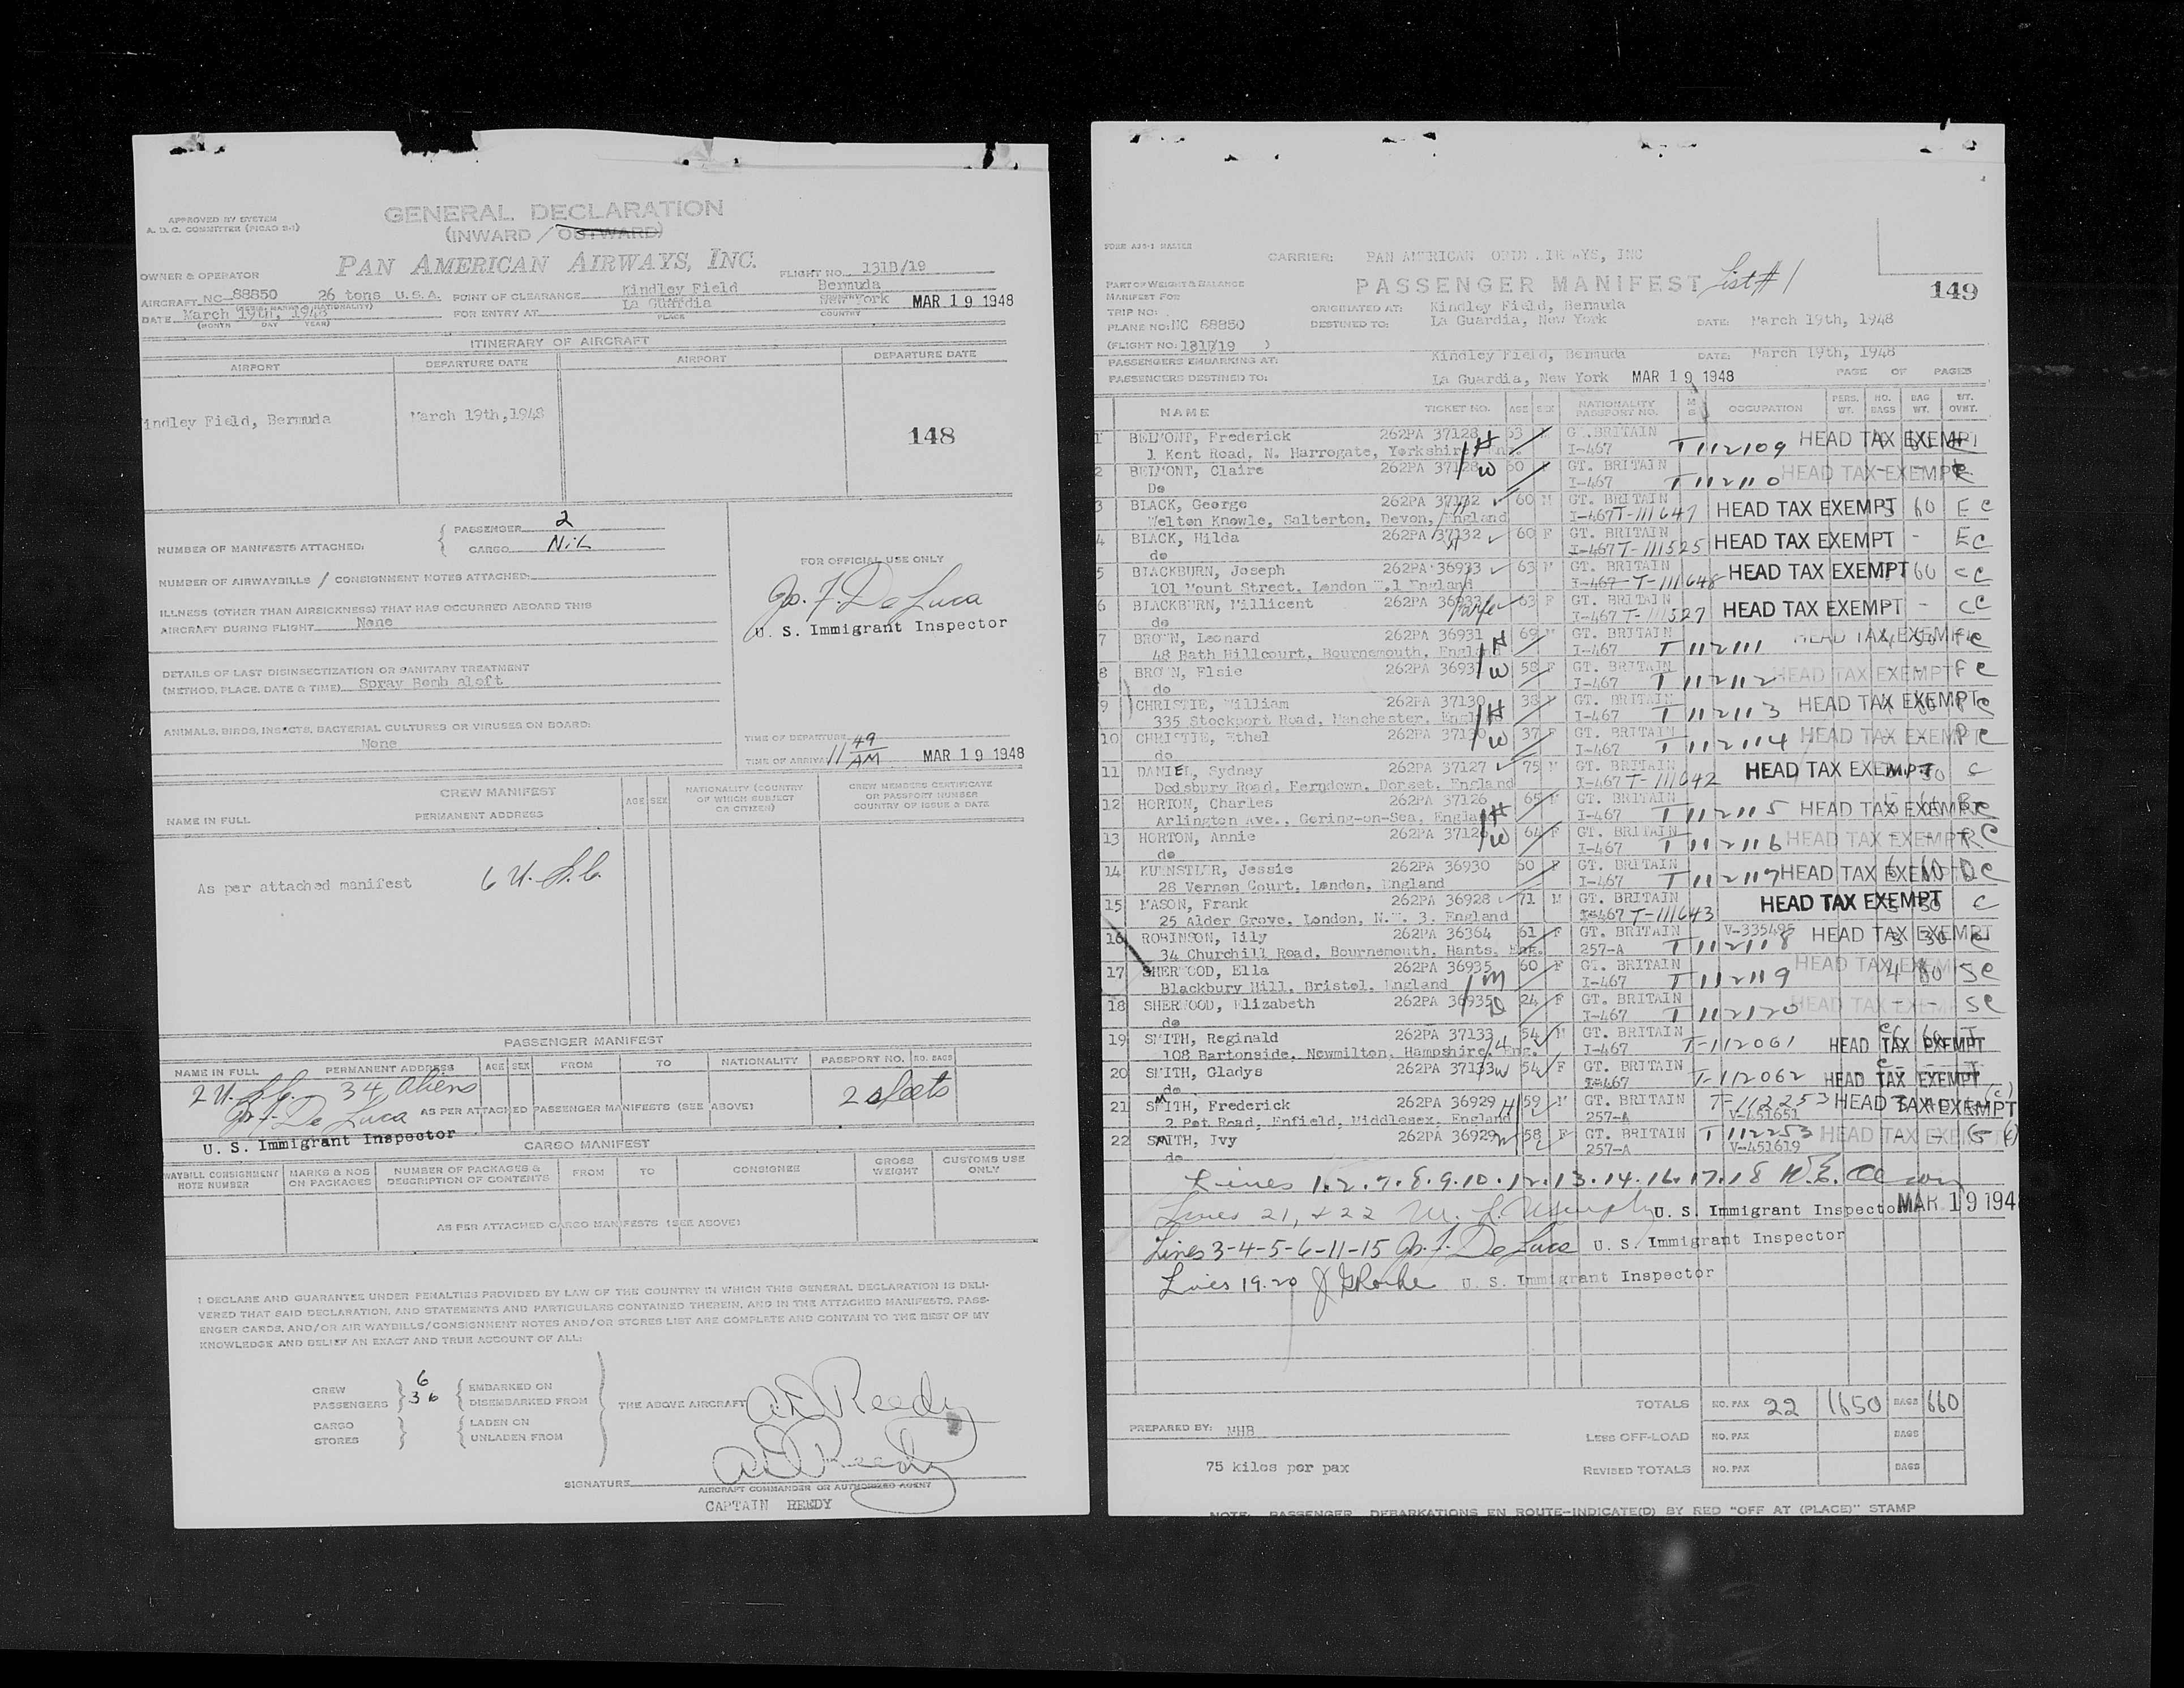 APPROVED BY SYSTEM
A. D. C. COMMITTEE (PICAO S-1)
GENERAL DECLARATION
(INWARD / OUTWARD)
OWNER & OPERATOR
PAN AMERICAN AIRWAYS, INC.
FLIGHT NO. 131B/19
AIRCRAFT NC 88850 26 tons U.S.A. POINT OF CLEARANCE Kindley Field Bermuda
DATE March 19th, 1948 FOR ENTRY AT La Guardia New York MAR 19 1948
(MONTH DAY YEAR) PLACE COUNTRY
ITINERARY OF AIRCRAFT
AIRPORT DEPARTURE DATE AIRPORT DEPARTURE DATE
indley Field, Bermuda March 19th, 1948
148
NUMBER OF MANIFESTS ATTACHED: PASSENGER 2
CARGO NiL
NUMBER OF AIRWAYBILLS / CONSIGNMENT NOTES ATTACHED:
ILLNESS (OTHER THAN AIRSICKNESS) THAT HAS OCCURRED ABOARD THIS
AIRCRAFT DURING FLIGHT None
DETAILS OF LAST DISINSECTIZATION OR SANITARY TREATMENT
(METHOD, PLACE, DATE & TIME) Spray Bomb aloft
ANIMALS, BIRDS, INSECTS, BACTERIAL CULTURES OR VIRUSES ON BOARD:
None
FOR OFFICIAL USE ONLY
Jos. F. De Luca
U. S. Immigrant Inspector
TIME OF DEPARTURE
TIME OF ARRIVAL 11 49 AM MAR 19 1948
CREW MANIFEST
NAME IN FULL PERMANENT ADDRESS AGE SEX NATIONALITY (COUNTRY OF WHICH SUBJECT OR CITIZEN) CREW MEMBERS CERTIFICATE OR PASSPORT NUMBER COUNTRY OF ISSUE & DATE
As per attached manifest 6 U.S.C.
PASSENGER MANIFEST
NAME IN FULL PERMANENT ADDRESS AGE SEX FROM TO NATIONALITY PASSPORT NO. NO. BAGS
2 U.S.C. 34 aliens 2 sheets
Jos. F. De Luca AS PER ATTACHED PASSENGER MANIFESTS (SEE ABOVE)
U. S. Immigrant Inspector
CARGO MANIFEST
WAYBILL CONSIGNMENT NOTE NUMBER MARKS & NOS ON PACKAGES NUMBER OF PACKAGES & DESCRIPTION OF CONTENTS FROM TO CONSIGNEE GROSS WEIGHT CUSTOMS USE ONLY
AS PER ATTACHED CARGO MANIFESTS (SEE ABOVE)
I DECLARE AND GUARANTEE UNDER PENALTIES PROVIDED BY LAW OF THE COUNTRY IN WHICH THIS GENERAL DECLARATION IS DELI-
VERED THAT SAID DECLARATION, AND STATEMENTS AND PARTICULARS CONTAINED THEREIN, AND IN THE ATTACHED MANIFESTS, PASS-
ENGER CARDS, AND/OR AIR WAYBILLS/CONSIGNMENT NOTES AND/OR STORES LIST ARE COMPLETE AND CONTAIN TO THE BEST OF MY
KNOWLEDGE AND BELIEF AN EXACT AND TRUE ACCOUNT OF ALL:
CREW 6 EMBARKED ON
PASSENGERS 36 DISEMBARKED FROM
CARGO LADEN ON
STORES UNLADEN FROM
THE ABOVE AIRCRAFT
SIGNATURE
AIRCRAFT COMMANDER OR AUTHORIZED AGENT
CAPTAIN REEDY
CARRIER: PAN AMERICAN AIRWAYS, INC
PASSENGER MANIFEST List #1
149
PART OF WEIGHT & BALANCE
MANIFEST FOR
TRIP NO:
PLANE NO: NC 88850
(FLIGHT NO: 131B/19 )
ORIGINATED AT: Kindley Field, Bermuda
DESTINED TO: La Guardia, New York DATE: March 19th, 1948
PASSENGERS EMBARKING AT: Kindley Field, Bermuda DATE: March 19th, 1948
PASSENGERS DESTINED TO: La Guardia, New York MAR 19 1948 PAGE OF PAGES
NAME TICKET NO. AGE SEX NATIONALITY PASSPORT NO. M S OCCUPATION PERS. WT. NO. BAGS BAG WT.
1 BELMONT, Frederick 262PA 37128 H 63 GT. BRITAIN HEAD TAX EXEMPT
1 Kent Road, N. Harrogate, Yorkshire I-467 T 112109
2 BELMONT, Claire 262PA 37128 W 60 GT. BRITAIN HEAD TAX EXEMPT
Do I-467 T 112110
3 BLACK, George 262PA 37132 60 M GT. BRITAIN HEAD TAX EXEMPT 60 E C
Welton Knowle, Salterton, Devon, England I-467 T-111647
4 BLACK, Hilda 262PA 37132 60 F GT. BRITAIN HEAD TAX EXEMPT - E C
do I-467 T-111525
5 BLACKBURN, Joseph 262PA 36933 63 M GT. BRITAIN HEAD TAX EXEMPT 60 C C
101 Mount Street, London W.1 England I-467 T-111648
6 BLACKBURN, Millicent 262PA 36933 wife 63 F GT. BRITAIN HEAD TAX EXEMPT - C C
do I-467 T-111527
7 BROWN, Leonard 262PA 36931 H 69 M GT. BRITAIN HEAD TAX EXEMPT
48 Bath Hillcourt, Bournemouth, England I-467 T 112111
8 BROWN, Elsie 262PA 36931 W 58 F GT. BRITAIN HEAD TAX EXEMPT F C
do I-467 T 112112
9 CHRISTIE, William 262PA 37130 H 38 M GT. BRITAIN HEAD TAX EXEMPT
335 Stockport Road, Manchester, England I-467 T 112113
10 CHRISTIE, Ethel 262PA 37130 W 37 F GT. BRITAIN HEAD TAX EXEMPT
do I-467 T 112114
11 DANIEL, Sydney 262PA 37127 75 M GT. BRITAIN HEAD TAX EXEMPT C
Dedsbury Road, Ferndown, Dorset, England I-467 T-111642
12 HORTON, Charles 262PA 37126 H 65 M GT. BRITAIN HEAD TAX EXEMPT
Arlington Ave., Goring-on-Sea, England I-467 T 112115
13 HORTON, Annie 262PA 37126 W 64 F GT. BRITAIN HEAD TAX EXEMPT
do I-467 T 112116
14 KUENSTLER, Jessie 262PA 36930 60 F GT. BRITAIN HEAD TAX EXEMPT
28 Vernon Court, London, England I-467 T 112117
15 MASON, Frank 262PA 36928 71 M GT. BRITAIN HEAD TAX EXEMPT C
25 Alder Grove, London, N.W. 3. England I-467 T-111643
16 ROBINSON, Lily 262PA 36364 61 F GT. BRITAIN V-335495 HEAD TAX EXEMPT
34 Churchill Road, Bournemouth, Hants. Eng. 257-A T 112118
17 SHERWOOD, Ella 262PA 36935 M 60 F GT. BRITAIN HEAD TAX EXEMPT 4 80 S C
Blackbury Hill, Bristol, England I-467 T 112119
18 SHERWOOD, Elizabeth 262PA 36935 D 24 F GT. BRITAIN HEAD TAX EXEMPT S C
do I-467 T 112120
19 SMITH, Reginald 262PA 37133 H 54 M GT. BRITAIN HEAD TAX EXEMPT
108 Bartonside, Newmilton, Hampshire, Eng. I-467 T-112061
20 SMITH, Gladys 262PA 37133 W 54 F GT. BRITAIN HEAD TAX EXEMPT
do I-467 T-112062
21 SMITH, Frederick 262PA 36929 H 59 M GT. BRITAIN T-112253 HEAD TAX EXEMPT
2 Pet Road, Enfield, Middlesex, England 257-A V-451651
22 SMITH, Ivy 262PA 36929 W 58 F GT. BRITAIN T 112253 HEAD TAX EXEMPT
do 257-A V-451619
Lines 1.2.7.8.9.10.12.13.14.16.17.18
Lines 21, & 22 U. S. Immigrant Inspector MAR 19 194
Lines 3-4-5-6-11-15 Jos. F. De Luca U. S. Immigrant Inspector
Lines 19.20 U. S. Immigrant Inspector
TOTALS NO. PAX 22 1650 BAGS 660
PREPARED BY: MHB LESS OFF-LOAD NO. PAX BAGS
75 kilos per pax REVISED TOTALS NO. PAX BAGS
NOTE: PASSENGER DEBARKATIONS EN ROUTE-INDICATE(D) BY RED "OFF AT (PLACE)" STAMP